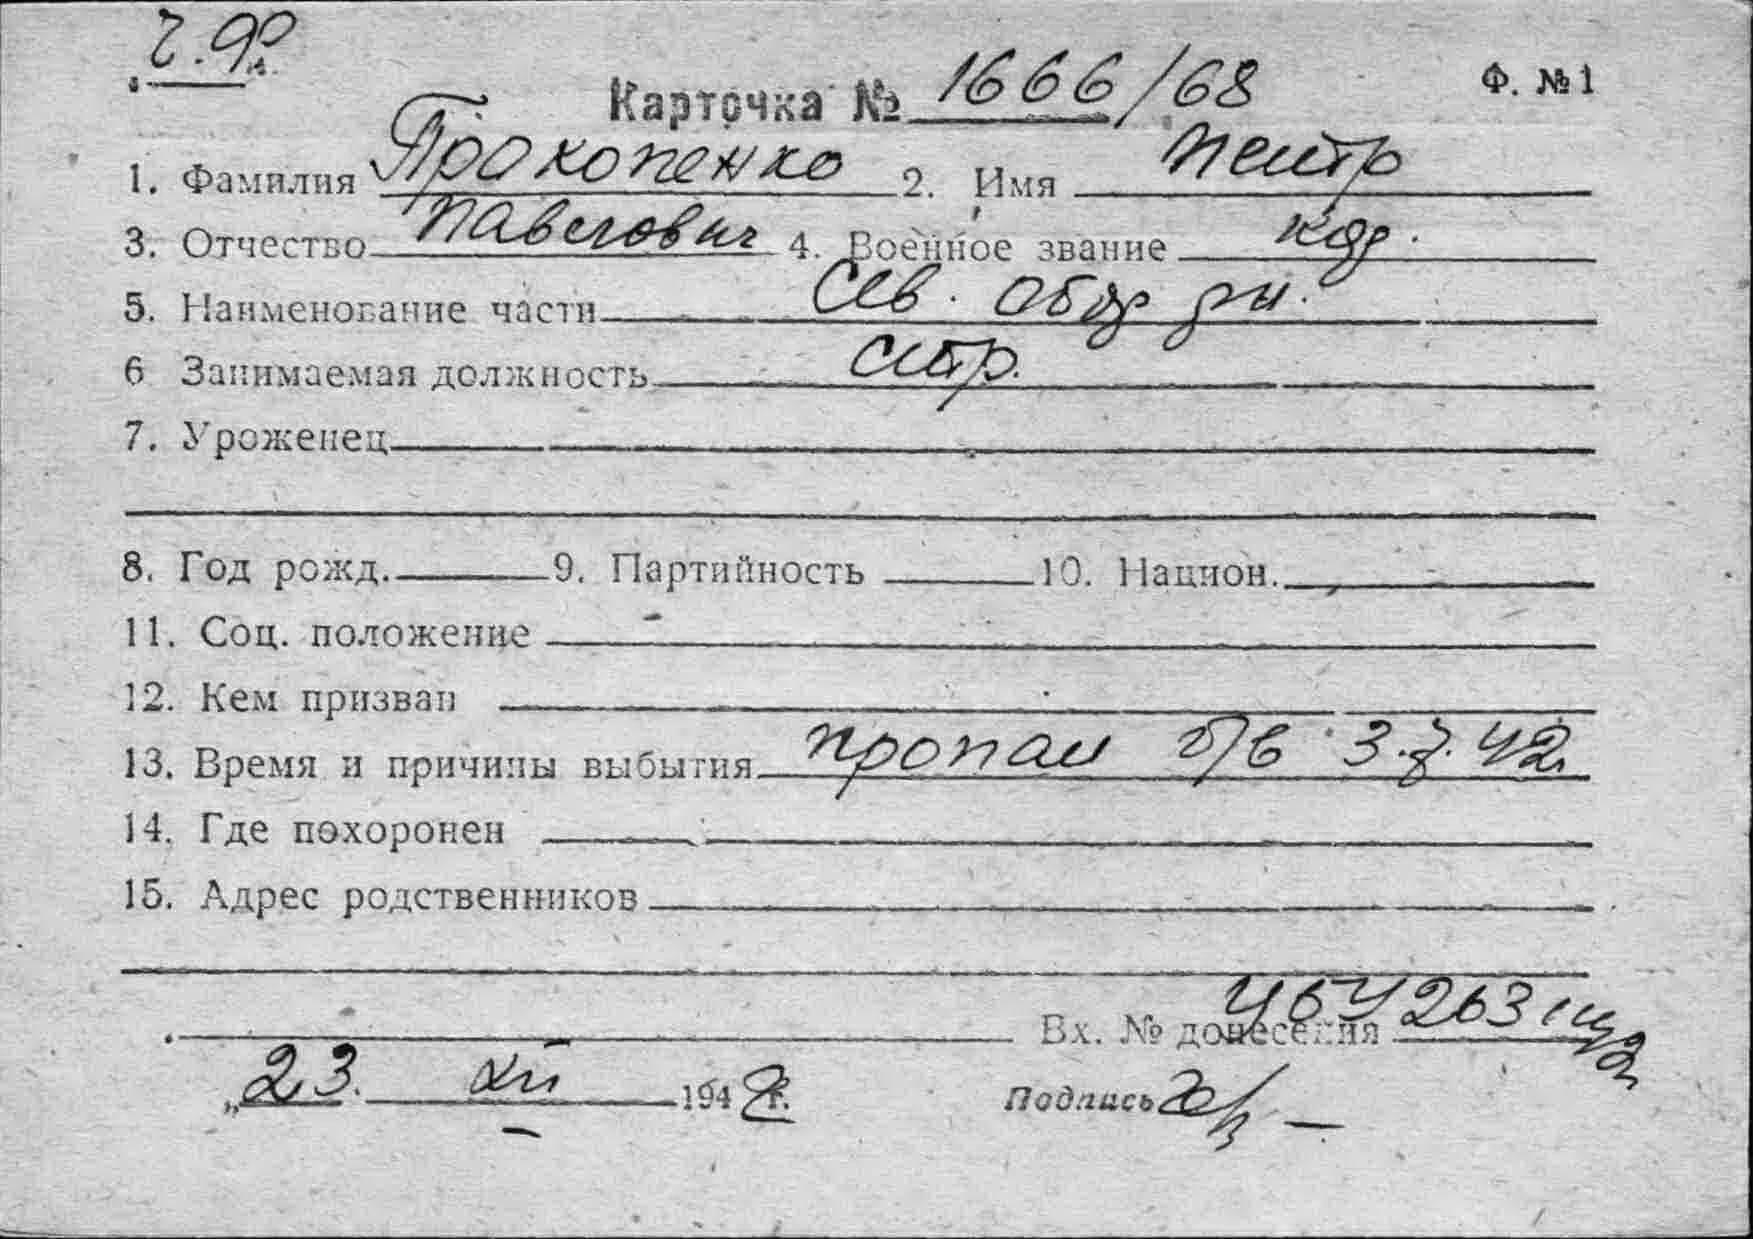 Ч.Ф.
Карточка № 1666/68 Ф. №1
1. Фамилия Прокопенко 2. Имя Петр
3. Отчество Павлович 4. Военное звание
5. Наименование части Сев. обор
6 Занимаемая должность стр.
7. Уроженец
8. Год рожд. 9. Партийность 10. Национ.
11. Соц. положение
12. Кем призван
13. Время и причины выбытия пропал б/в 3.7.42
14. Где похоронен
15. Адрес родственников
Вх. № донесения
„23. XII 194 г.
Подпись